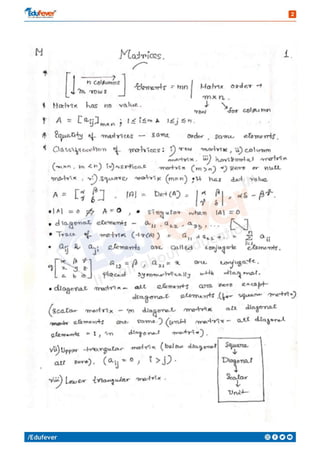 Edufever
2
M
Matrices.
1.
n columns
m rows
Elements = mn
Matrix order →
m × n.
row
for column
Matrix has no value.
A = [aij]m×n ; 1≤i≤m & 1≤j≤n.
Equality of matrices — same order, same elements.
Classification of matrices: i) row matrix, ii) column
matrix. iii) horizontal matrix
(m×n, m<n) iv) vertical matrix (m>n) v) zero or null
matrix, vi) square matrix (m=n) it has det value
A = [α β γ δ]. |A| = Det(A) = |α β γ δ| = αδ - βγ.
• |A| = 0 ⇏ A = 0, • singular when |A| = 0
• diagonal elements - a11, a22, a33, ...
• Trace of matrix (tr(A)) = a11 + a22 + ... = Σ aii
• aij & aji elements are called conjugate elements.
a12 = β, a21 = x are conjugate.
placed symmetrically with diagonal.
• diagonal matrix - all elements are zero except
diagonal elements (for square matrix)
(scalar matrix - in diagonal matrix all diagonal
elements are same) (unit matrix - all diagonal
elements = 1, in diagonal matrix).
vii) Upper triangular matrix (below diagonal
all zero). (aij = 0, i > j).
viii) Lower triangular matrix.
Square
↓
Diagonal
↓
Scalar
↓
Unit
/Edufever